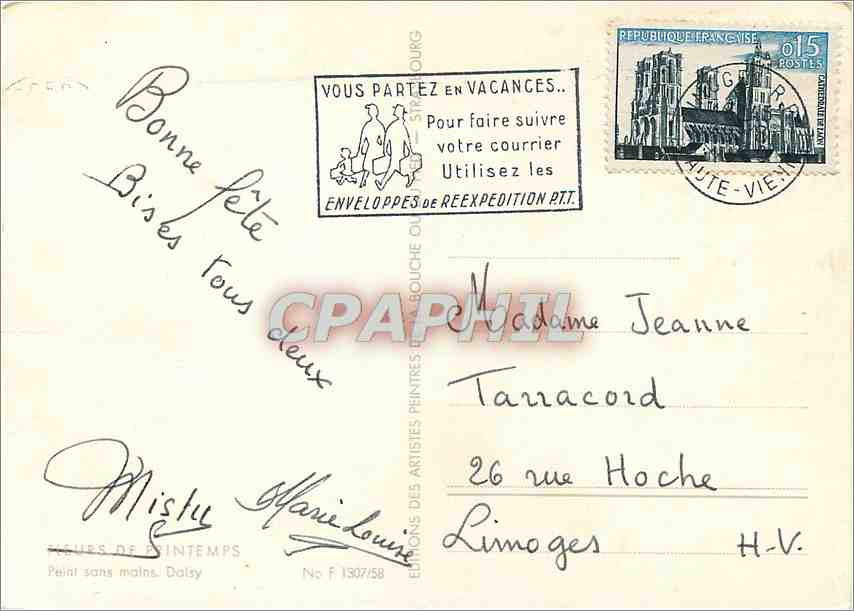 VOUS PARTEZ EN VACANCES..
Pour faire suivre
votre courrier
Utilisez les
ENVELOPPES DE REEXPEDITION P.T.T.
REPUBLIQUE FRANÇAISE
0,15
POSTES
CATHEDRALE DE LAON
HAUTE-VIENNE
Bonne fête
Bises tous deux
Misty
Marie Louise
CPAPHIL
Madame Jeanne
Tarracord
26 rue Hoche
Limoges H-V.
EDITIONS DES ARTISTES PEINTRES DE LA BOUCHE OU DU PIED — STRASBOURG
FLEURS DE PRINTEMPS
Peint sans mains. Daisy
No F 1307/58